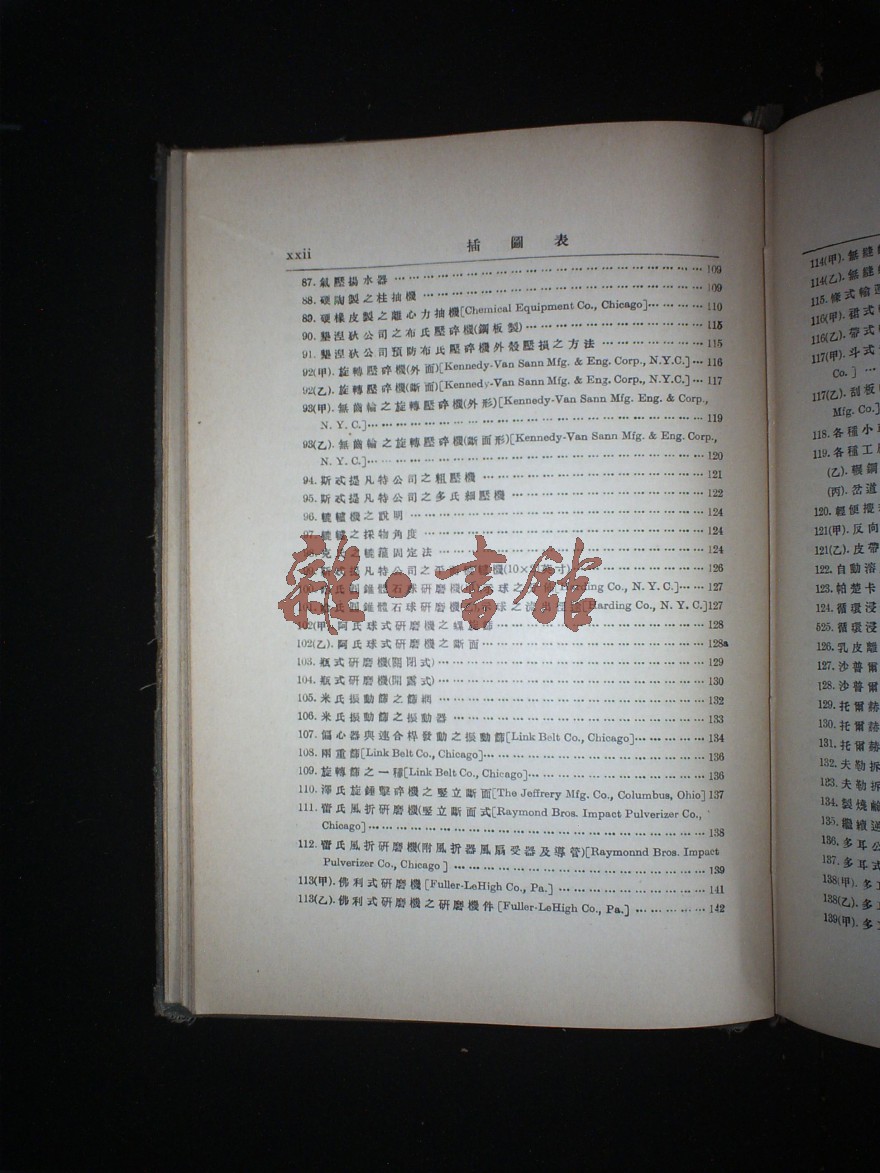 xxii
插圖表
87. 氣壓揚水器 109
88. 硬陶製之柱抽機 109
89. 硬橡皮製之離心力抽機[Chemical Equipment Co., Chicago] 110
90. 墾涅狄公司之布氏壓碎機(鋼板製) 115
91. 墾涅狄公司預防布氏壓碎機外殼壓損之方法 115
92(甲). 旋轉壓碎機(外面)[Kennedy-Van Sann Mfg. & Eng. Corp., N.Y.C.] 116
92(乙). 旋轉壓碎機(斷面)[Kennedy-Van Sann Mfg. & Eng. Corp., N.Y.C.] 117
93(甲). 無齒輪之旋轉壓碎機(外形)[Kennedy-Van Sann Mfg. Eng. & Corp.,
N. Y. C.] 119
93(乙). 無齒輪之旋轉壓碎機(斷面形)[Kennedy-Van Sann Mfg. & Eng. Corp.,
N. Y. C.] 120
94. 斯忒提凡特公司之粗壓機 121
95. 斯忒提凡特公司之多氏細壓機 122
96. 轆轤機之說明 124
97. 轆轤之採物角度 124
克氏之轆 固定法 124
提凡特公司之 機(10× 寸) 126
100. 氏圓錐體石球研磨機 球之 [Harding Co., N. Y. C.] 127
氏圓錐體石球研磨機 示球之流出徑途[Harding Co., N. Y. C.]127
102(甲). 阿氏球式研磨機之螺旋篩 128
102(乙). 阿氏球式研磨機之斷面 128a
103. 瓶式研磨機(關閉式) 129
104. 瓶式研磨機(開露式) 130
105. 米氏振動篩之篩網 132
106. 米氏振動篩之振動器 133
107. 偏心器與連合桿發動之振動篩[Link Belt Co., Chicago] 134
108. 兩重篩[Link Belt Co., Chicago] 136
109. 旋轉篩之一種[Link Belt Co., Chicago] 136
110. 澤氏旋錘擊碎機之竪立斷面[The Jeffrery Mfg. Co., Columbus, Ohio] 137
111. 雷氏風折研磨機(竪立斷面式)[Raymond Bros. Impact Pulverizer Co.,
Chicago] 138
112. 雷氏風折研磨機(附風折器風扇受器及導管)[Raymonnd Bros. Impact
Pulverizer Co., Chicago] 139
113(甲). 佛利式研磨機[Fuller-LeHigh Co., Pa.] 141
113(乙). 佛利式研磨機之研磨機件[Fuller-LeHigh Co., Pa.] 142
雜·書館
114(甲). 無縫
114(乙). 無縫
115. 條式輸
116(甲). 裙式
116(乙). 帶式
117(甲). 斗式
Co.]
117(乙). 刮板
Mfg. Co.]
118. 各種小
119. 各種工
(乙). 輾鋼
(丙). 岔道
120. 輕便攪
121(甲). 反向
121(乙). 皮帶
122. 自動溶
123. 帕楚卡
124. 循環浸
525. 循環浸
126. 乳皮離
127. 沙普爾
128. 沙普爾
129. 托爾赫
130. 托爾赫
131. 托爾赫
132. 夫勒拆
133. 夫勒拆
134. 製燒鹼
135. 繼續
136. 多耳公
137. 多耳式
138(甲). 多耳
138(乙). 多
139(甲). 多